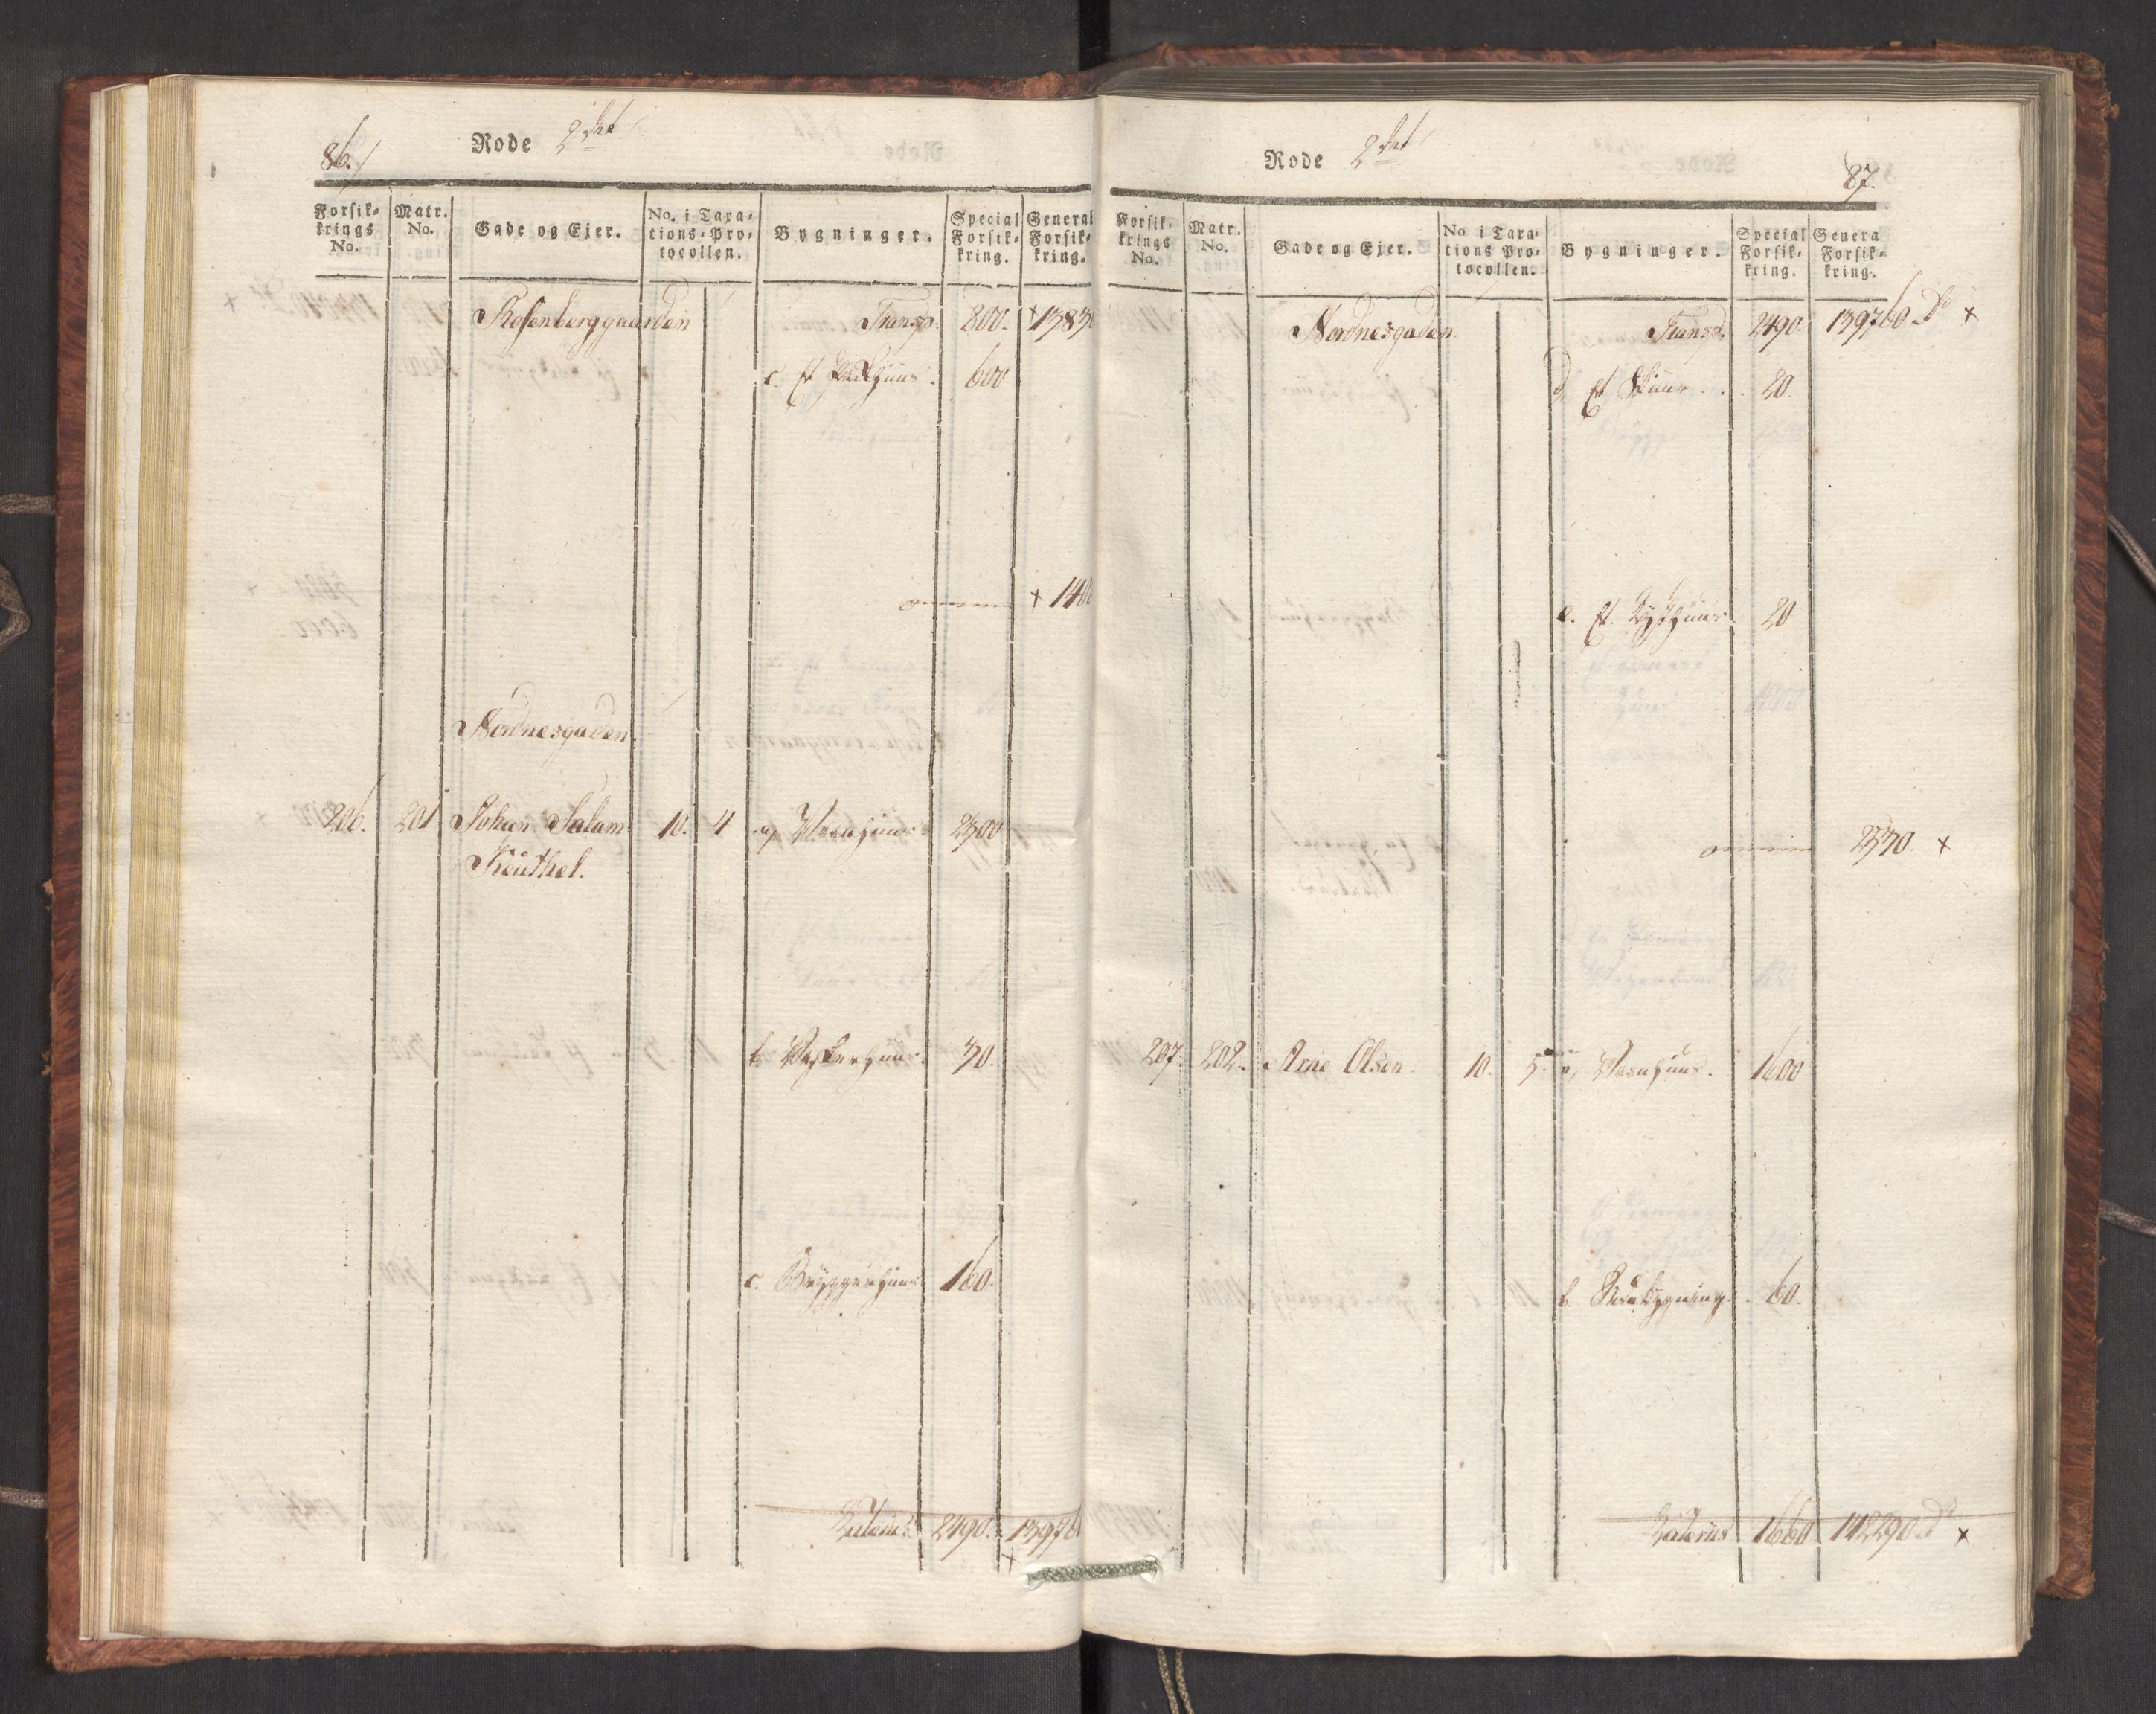 86.
Rode 2det
Forsik-krings No. Matr. No. Gade og Ejer. No. i Taxa-tions-Pro-tocollen. Bygninger. Special Forsik-kring. General Forsik-kring.
Rosenberggaarden Transp. 800. + 1383
c. Et Pakhuus. 600
+ 140
Nordnesgaden
206. 201 Johan Salam. 10. 4 a, Vaanhuus 2300
Reuthel.
b. Vaskerhuus. 30.
c. Bryggerhuus 160.
Lateris 2490. 13976
+
Rode 2det
87.
Forsik-krings No. Matr. No. Gade og Ejer. No i Taxa-tions Pro-tocollen. Bygninger. Special Forsik-kring. Genera Forsik-kring.
Nordnesgaden Transp. 2490. 139760 Do +
d, Et Skuur . . 20.
e. Et Lysthuus 20
2530. +
207. 202. Arne Olsen. 10. 5. a, Vaanhuus. 1600
b. Sidebygning . 60.
Lateris 1660 142290 Do +